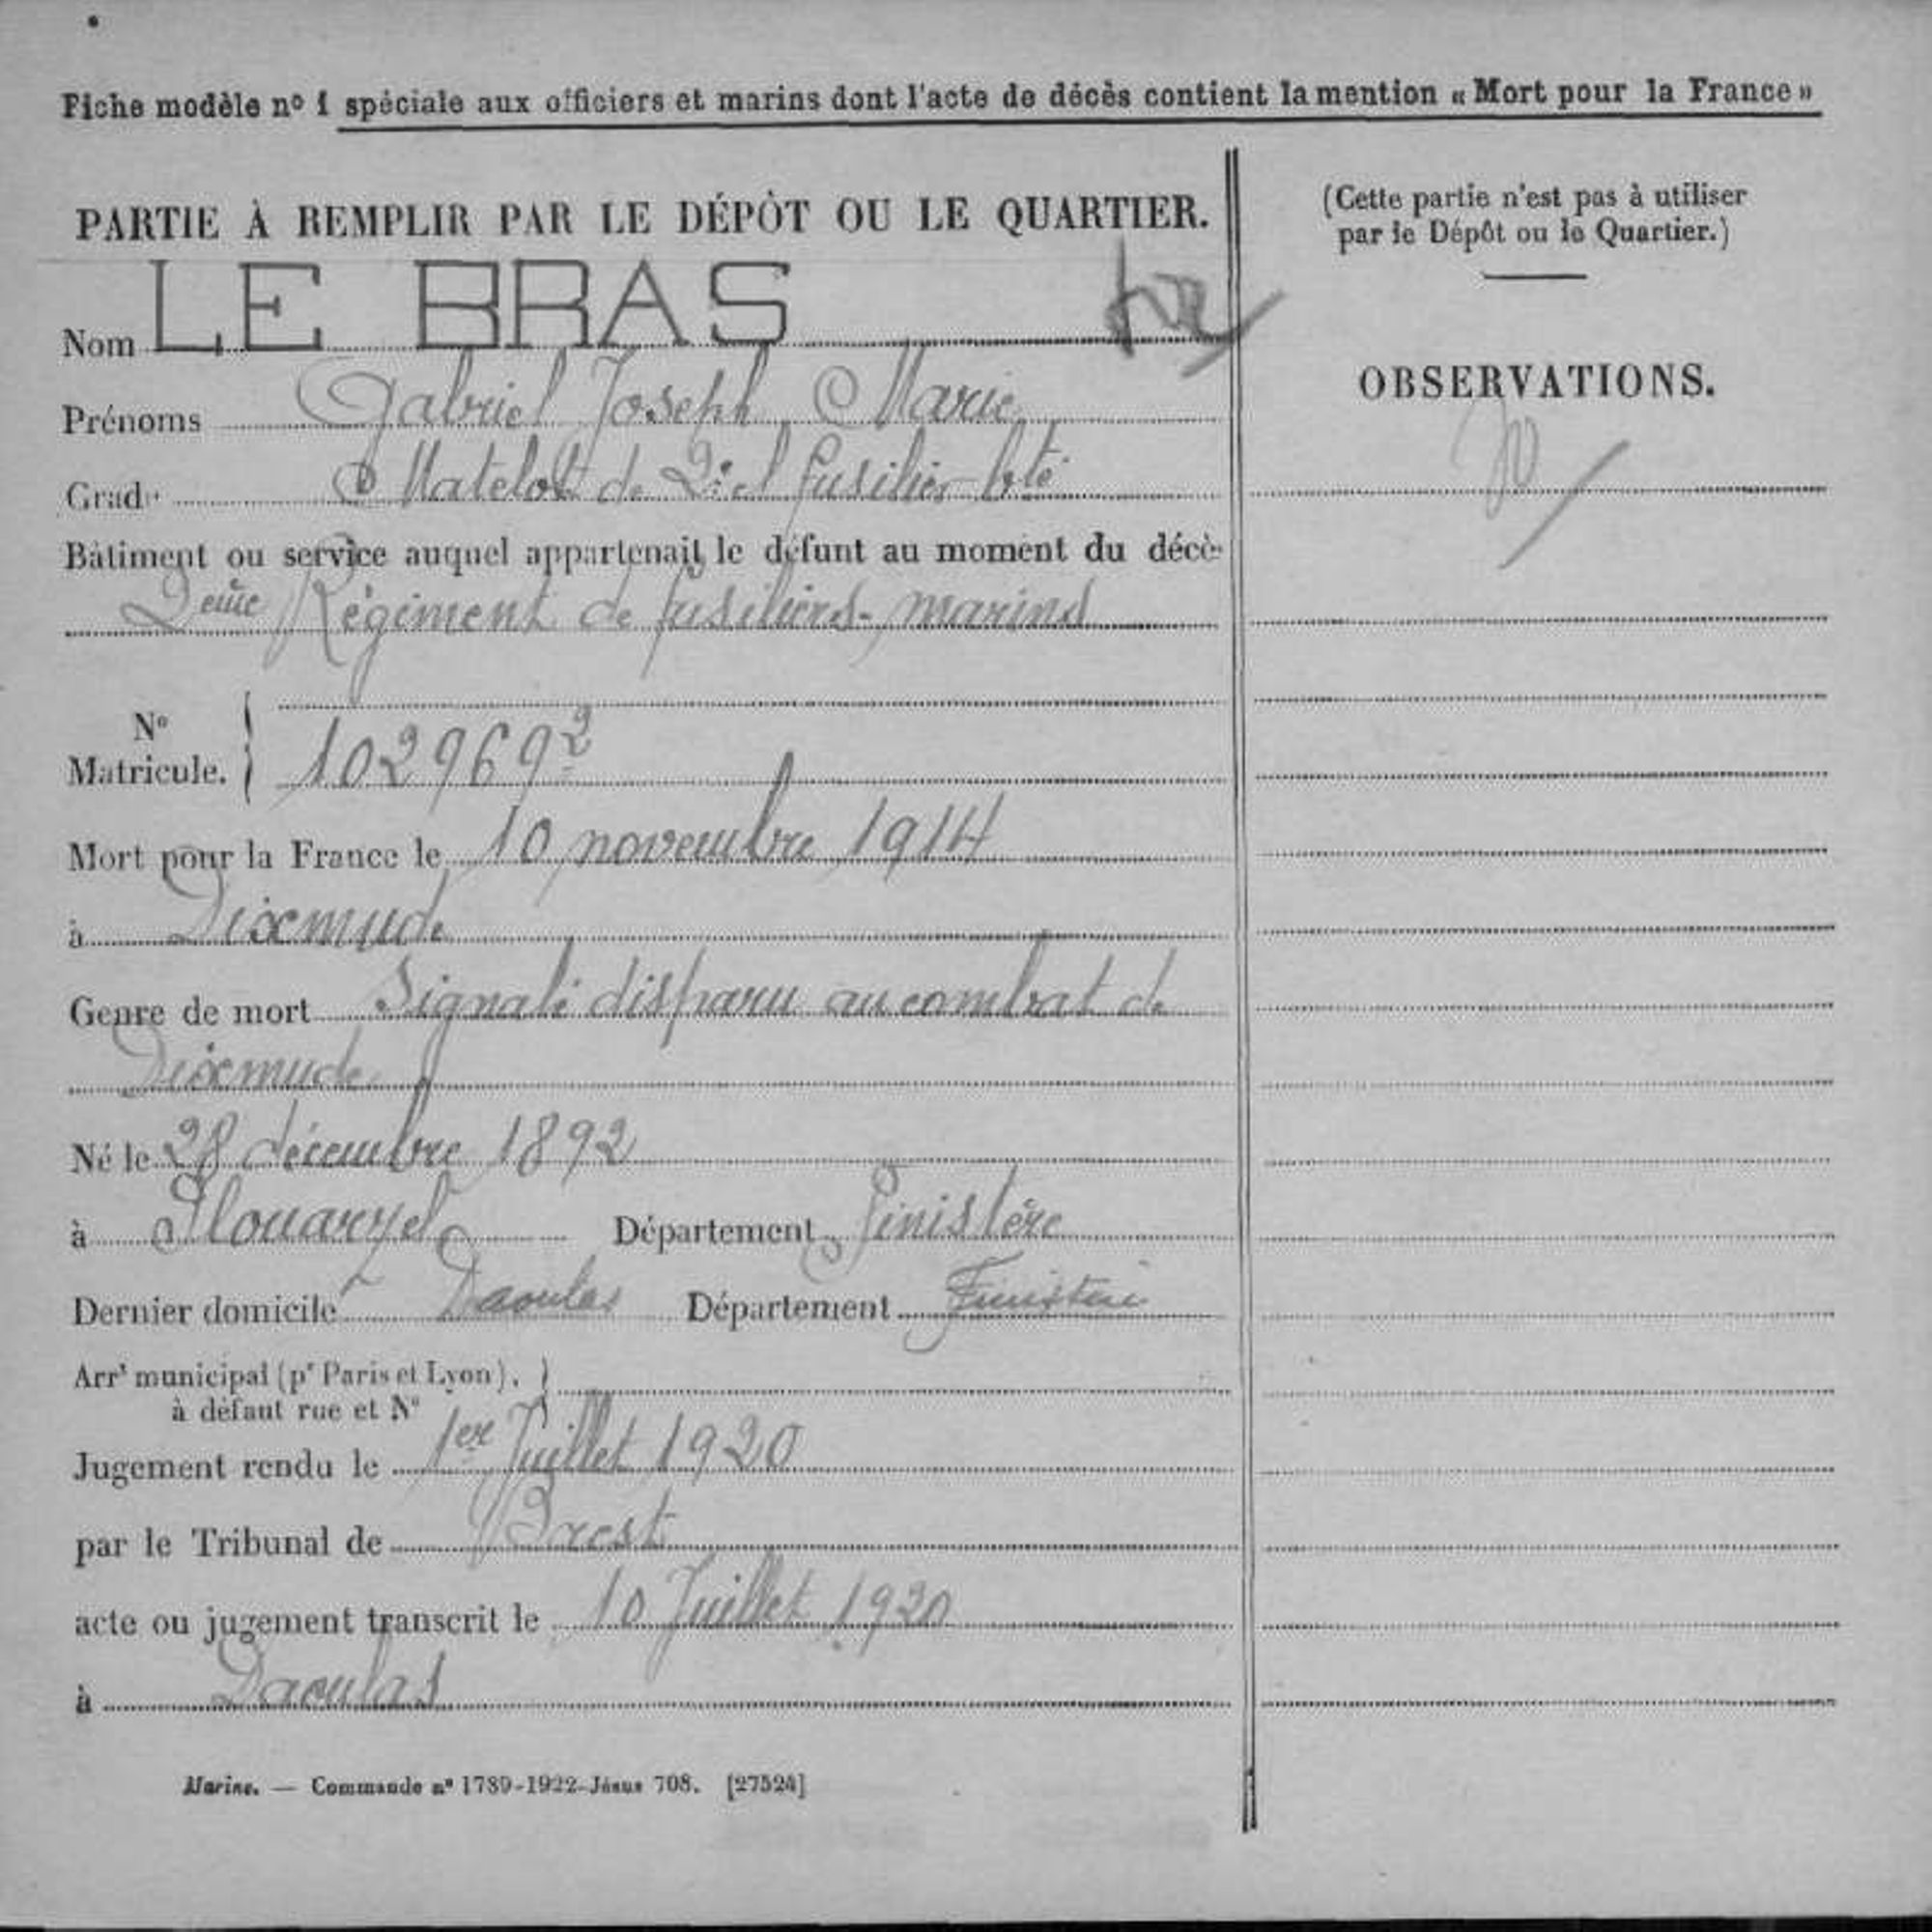 Fiche modèle nº 1 spéciale aux officiers et marins dont l'acte de décès contient la mention « Mort pour la France »
PARTIE À REMPLIR PAR LE DÉPÔT OU LE QUARTIER.
Nom LE BRAS
Prénoms Gabriel Joseph Marie
Grade Matelot de 2e cl fusilier bté
Bâtiment ou service auquel appartenait le défunt au moment du décès
2ème Régiment de fusiliers-marins
Nº
Matricule. } 102969 2
Mort pour la France le 10 novembre 1914
à Dixmude
Genre de mort Signalé disparu au combat de
Dixmude
Né le 28 décembre 1892
à Plouarzel Département Finistère
Dernier domicile Daoulas Département Finistère
Arrt municipal (pr Paris et Lyon), }
à défaut rue et Nº
Jugement rendu le 1er Juillet 1920
par le Tribunal de Brest
acte ou jugement transcrit le 10 Juillet 1920
à Daoulas
Marine. — Commande nº 1789-1922-Jésus 708. [27524]
(Cette partie n'est pas à utiliser
par le Dépôt ou le Quartier.)
OBSERVATIONS.